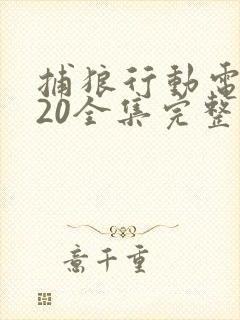 捕狼行動電
20全集完整
意千重